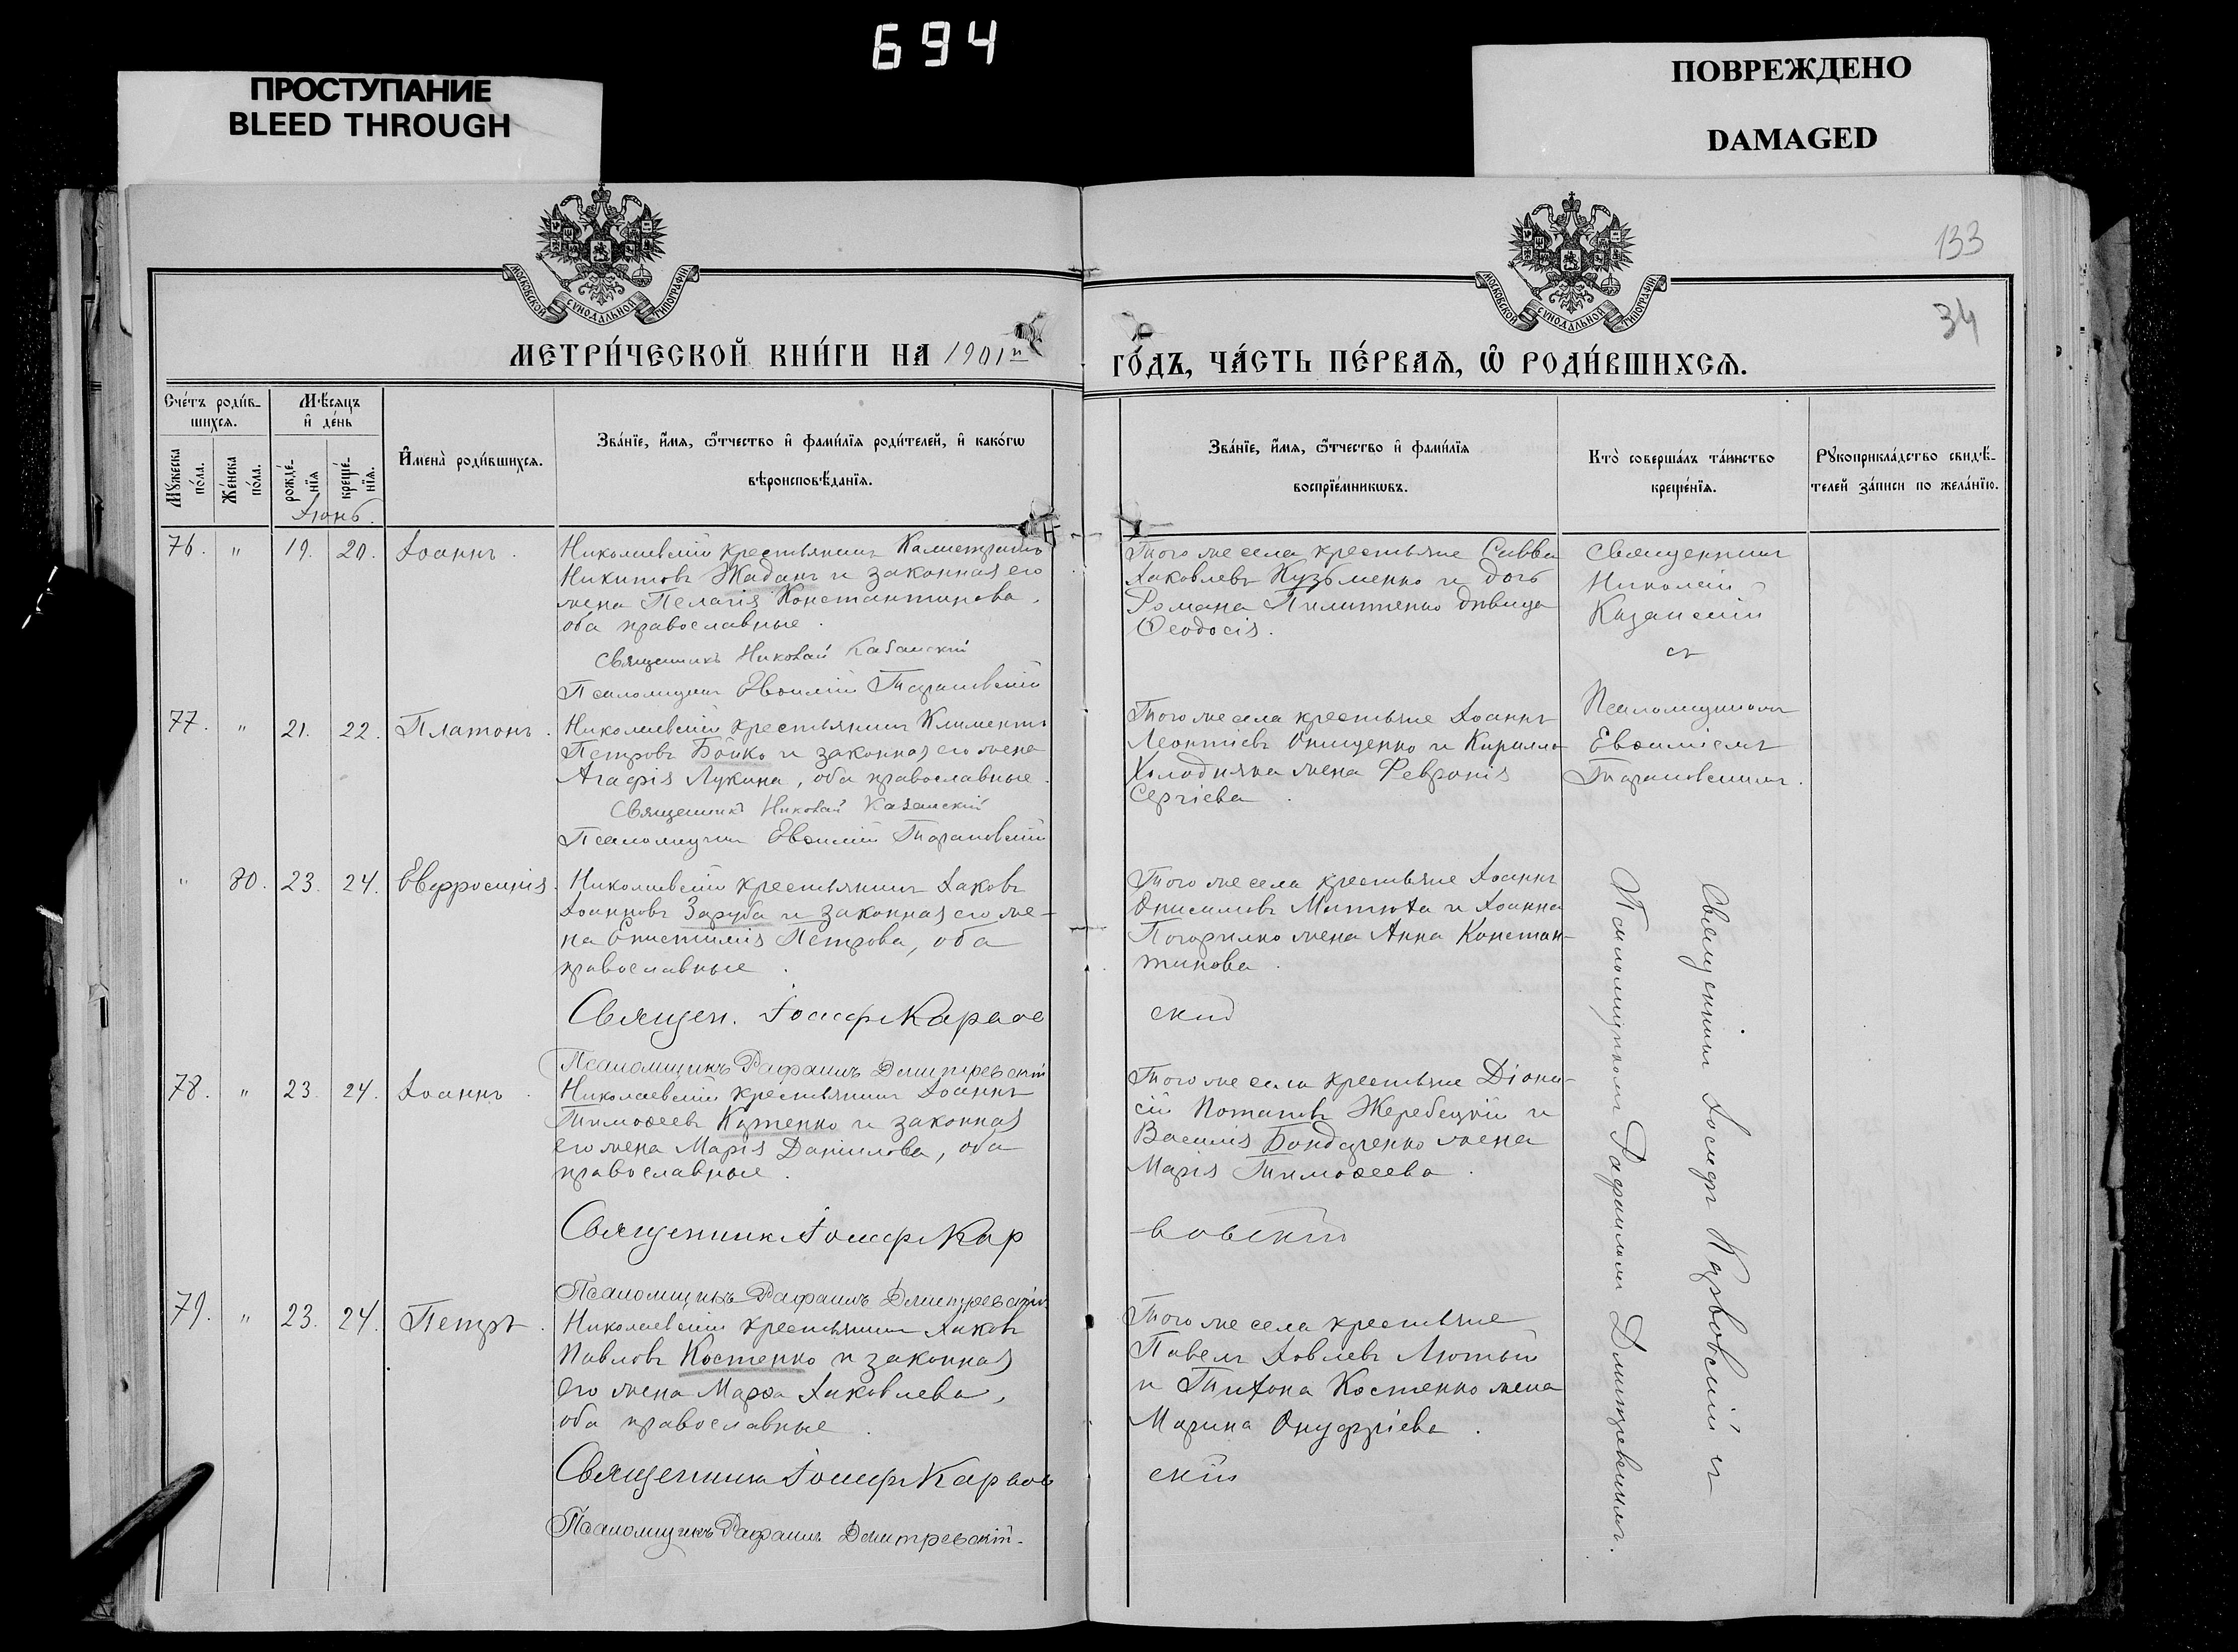 694
ПРОСТУПАНИЕ
BLEED THROUGH
ПОВРЕЖДЕНО
DAMAGED
МОСКОВСКОЙ СУНОДАЛЬНОЙ ТИПОГРАФІИ
МОСКОВСКОЙ СУНОДАЛЬНОЙ ТИПОГРАФІИ
133
34
МЕТРИ́ЧЕСКОЙ КНИ́ГИ НА 1901й
ГО́ДЪ, ЧА́СТЬ ПЕ́РВАѦ, Ѡ҆ РОДИ́ВШИХСѦ.
Сче́тъ роди́в-
шихся.
Мꙋ́жеска по́ла.
Же́нска по́ла.
Мѣ́сяцъ и҆ де́нь
рожде́-нїя
креще́-нїя.
Іюнь.
И҆мена̀ роди́вшихся.
Зва́нїе, и҆́мя, ѻ҆́тчество и҆ фами́лїя роди́телей, и҆ како́гѡ
вѣроисповѣ́данїя.
Зва́нїе, и҆́мя, ѻ҆́тчество и҆ фами́лїя
воспрїе́мникѡвъ.
Кто̀ соверша́лъ та́инство
креще́нїя.
Рꙋкоприкла́дство свидѣ́-
телей за́писи по жела́нїю.
76. " 19. 20. Іоаннъ.
Николаевскій крестьянинъ Калистратъ
Никитовъ Жаданъ и законная его
жена Пелагія Константинова,
оба православные.
Священникъ Николай Казанскій
Псаломщикъ Евѳимій Тарановскій
Того же села крестьяне Савва
Іаковлевъ Кузьменко и дочь
Романа Пилипенко дѣвица
Ѳеодосія.
Священникъ
Николай
Казанскій
съ
Псаломщикомъ
Евѳиміемъ
Тарановскимъ.
77. " 21. 22. Платонъ.
Николаевскій крестьянинъ Климентъ
Петровъ Бойко и законная его жена
Агафія Лукина, оба православные.
Священникъ Николай Казанскій
Псаломщикъ Евѳимій Тарановскій
Того же села крестьяне Іоаннъ
Леонтіевъ Онищенко и Кирилла
Холодняка жена Февронія
Сергіева.
" 80. 23. 24. Евфросинія.
Николаевскій крестьянинъ Іаковъ
Іоанновъ Заруба и законная его же-
на Епистимія Петрова, оба
православные.
Священ. Іосифъ Карвов
скій
Псаломщикъ Рафаилъ Дмитревскій
Того же села крестьяне Іоаннъ
Онисимовъ Митюха и Іоанна
Погорилко жена Анна Констан-
тинова.
78. " 23. 24. Іоаннъ.
Николаевскій крестьянинъ Іоаннъ
Тимоѳеевъ Куценко и законная
его жена Марія Даніилова, оба
православные.
Священникъ Іосифъ Кар
вовскій
Псаломщикъ Рафаилъ Дмитревскій
Того же села крестьяне Діони-
сій Потаповъ Жеребецкій и
Василія Бондаренко жена
Марія Тимоѳеева.
79. " 23. 24. Петръ.
Николаевскій крестьянинъ Іаковъ
Павловъ Костенко и законная
его жена Марѳа Іаковлева,
оба православные.
Священникъ Іосифъ Карвов
скій
Псаломщикъ Рафаилъ Дмитревскій.
Того же села крестьяне
Павелъ Іовлевъ Лютый
и Тихона Костенко жена
Марина Онуфріева.
Священникъ Іосифъ Карвовскій съ
Псаломщикомъ Рафаиломъ Дмитревскимъ.